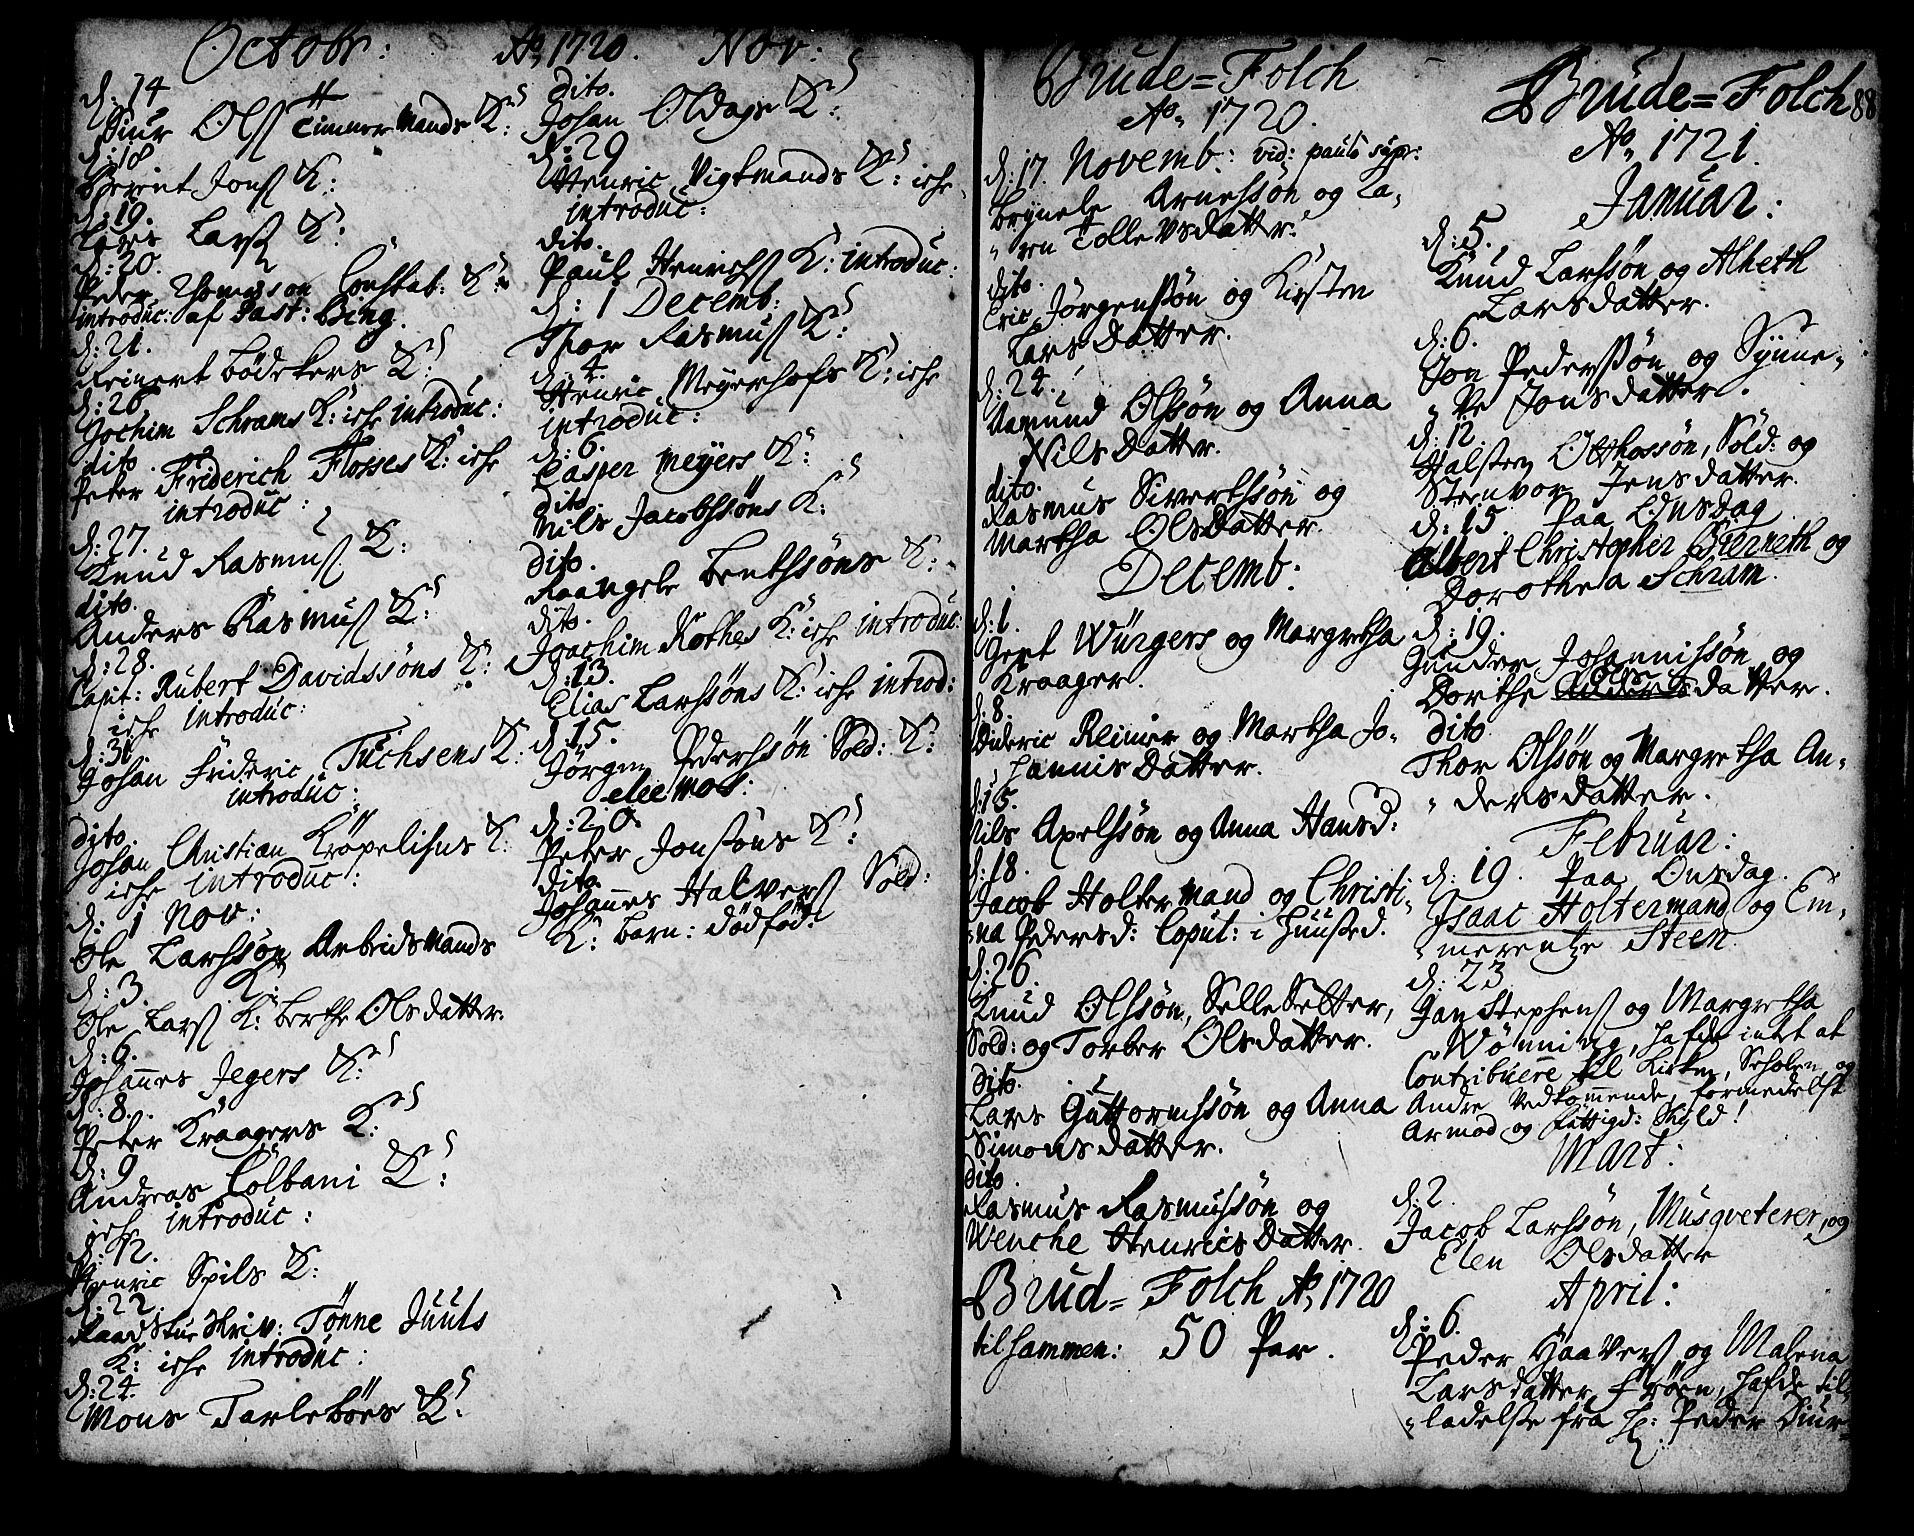 Octobr: Aō 1720. Nov:
d: 14
Siur Olß Timmermands K:
d: 18
Berent Jonß K:
d: 19.
Lars Larß K:
d: 20.
Peder Thomasson Constab: K:
introduc: af Past: Bing.
d: 21.
Reinert Bødekers K:
d: 26
Jochim Schrams K: iche introduc:
dito
Peter Friderich Flosses K: iche
introduc:
d: 27.
Knud Rasmuß K:
dito.
Anders Rasmuß K:
d: 28.
Capit: Rubert Davidssøns K:
iche introduc:
d: 31
Johan Frideric Tuchsens K:
introduc:
dito
Johan Christian Krøpelisus K:
iche introduc:
d: 1 Nov:
Ole Larssøn Arbeidsmands
K:
d: 3.
Ole Larß K: Berthe Olsdatter.
d: 6.
Johañes Jegers K:
d: 8.
Peter Kraagers K:
d: 9
Andreas Cölbani K:
iche introduc:
d: 12.
Henric Spils K:
d: 22.
Raadstue Skriv: Tønne Juuls
K: iche introduc:
d: 24.
Mons Tarlebøes K:
dito.
Johan Oldags K:
d: 29
Henric Vigtmands K: iche
introduc:
dito.
Paul Henrichß K: introduc:
d: 1 Decemb:
Thor Rasmuß K:
d: 4.
Henric Meyerhofs K: iche
introduc:
d: 6.
Casper Meyers K:
dito
Nils Jacobssøns K:
dito.
Raangele Bentssøns K:
dito.
Joachim Rothes K: iche introduc:
d: 13.
Elias Larssøns K: iche introd:
d: 15.
Jørgen Pederssøn Sold: K:
elee mos:
d: 20.
Peter Jonssøns K:
dito.
Johañes Halverß Sold:
K: Barn: dødfød:
Brude=Folch
Aō 1720.
d: 17. Novemb: vid: paulo supr:
Brynele Arnessøn og Ca,
"ren Tollevsdatter.
dito.
Eric Jørgenssøn og Kirsten
Larsdatter.
d: 24.
Aamund Olssøn og Anna
Nilsdatter.
dito.
Rasmus Sivertssøn og
Martha Olsdatter.
Decemb:
d: 1.
Gert Würgers og Margretha
Kraager.
d: 8.
Dideric Reimer og Martha Jo,
hannisdatter.
d: 15.
Nils Axelssøn og Anna Hansd:
d: 18.
Jacob Holtermand og Christi,
"na Pedersd: Coput: i Huused.
d: 26.
Knud Olssøn, Sellesetter,
Sold: og Torber Olsdatter.
dito.
Lars Guttormssøn og Anna
Simonsdatter.
dito.
Rasmus Rasmussøn og
Wenche Henricsdatter.
Brud=Folch Aō 1720
tilsammen: 50 Par.
Brude=Folch 88
Aō 1721.
Januar:
d: 5.
Knud Larssøn og Alheth
Larsdatter.
d: 6.
Jon Pederssøn og Synne,
"ve Jonsdatter.
d: 12
Halsten Otthossøn, Sold: og
Steenvor Jensdatter.
d: 15 Paa Onsdag
Albert Christopher Gierneth og
Dorothea Schram.
d: 19.
Gunder Johannissøn og
Dorthe Olsdatter.
dito
Thor Olssøn og Margretha An,
"dersdatter.
Februar:
d: 19. Paa Onsdag.
Isaac Holtermand og Em,
"merentze Steen
d: 23
Jan Stephenß og Margretha
Wønning, hafde intet at
Contribuere til Kirken, Scholen, og
Andre Vedkom̃ende, formedelst
Armod og Fattigd: Skyld!
Mart:
d: 2.
Jacob Larssøn, Musqveterer, og
Elen Olsdatter
April:
d: 6.
Peder Haaverß og Malena
Larsdatter Frøen, hafde til,
"ladelse fra Hr: Peder Siur=